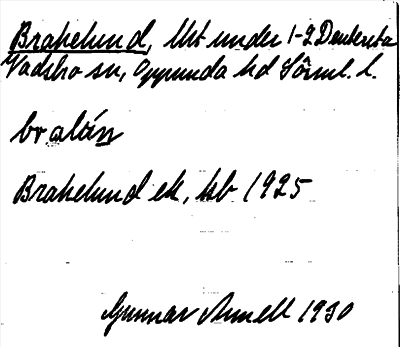 Brakelund, lht under 1-2 Dunkersta
Vadsbro sn, Oppunda hd Sörml. l.
bralún
Brakelund ek, kb 1925
Gunnar Arnell 1930